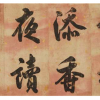 添香
夜讀